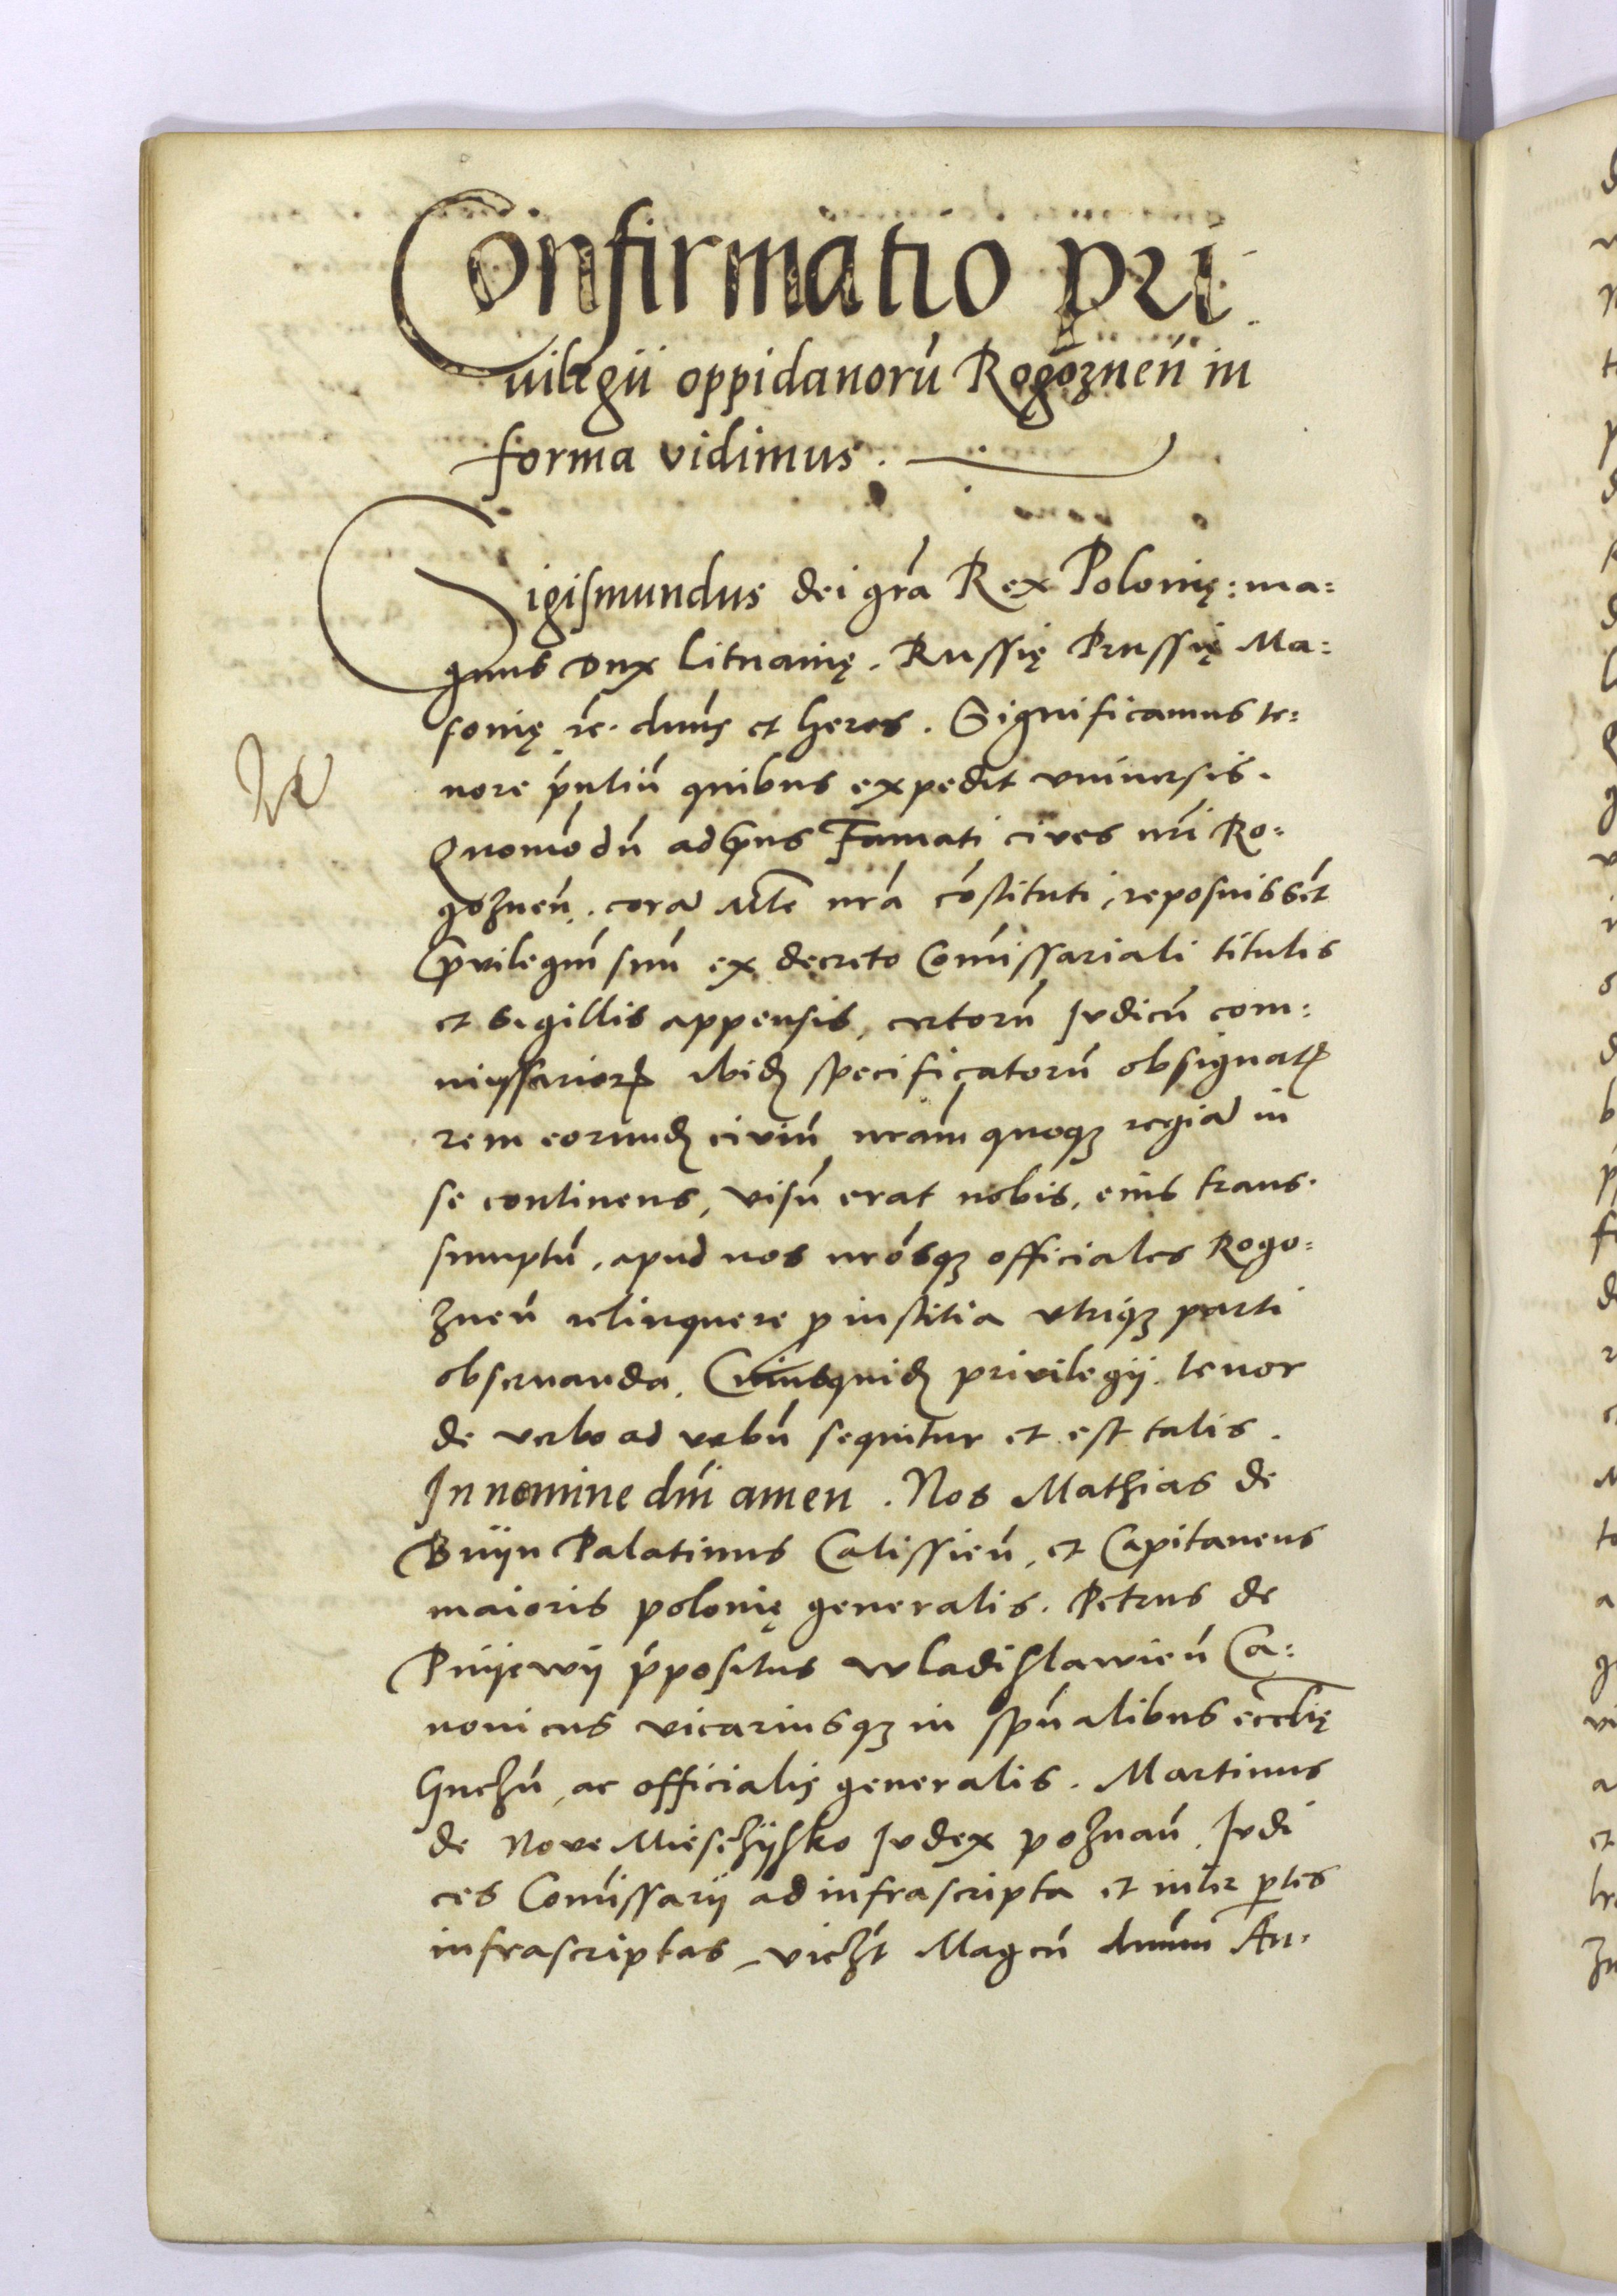 Confirmatio pri
uilegii oppidanorū Rogoznēn in
forma vidimus.
Sigismundus dei grā Rex Polonię: ma=
gnus Dux Lituanię. Russię Prussię Ma=
souię rc. dnūs et heres. Significamus te=
nore pn̄tiū quibus expedit vniuersis.
Quomōdū adhn̄s Famati ciues nrī Ro=
goznēn. corā Mte nrā cōstituti, reposuissēt
Priuilegiū suū ex decreto Com̄issariali titulis
et sigillis appensis, certorū Iudicū com=
missarioꝝ ibidꝫ specificatorū obsignatꝫ
rem eorundꝫ ciuiū nrām quoqꝫ regiā in
se continens, visū erat nobis, eius trans.
sumptū, apud nos nrōsqꝫ officiales Rogo=
znēn relinquere ꝓ iustitia vtriqꝫ parti
obseruanda. Cuiusquidꝫ priuilegij tenor
de verbo ad verbū sequitur et est talis.
In nomine dnī amen. Nos Mathias de
Bnijn Palatinus Calissiēn, et Capitaneus
maioris polonię generalis. Petrus de
Pnijewij pr̄positus wladislawiēn Ca=
nonicus vicariusqꝫ in spūalibus ecclīę
Gnezn̄, ac officialis generalis. Martinus
de Noue Mieschijsko Iudex poznān. Iudi
ces Com̄issarij ad infrascripta et inter ꝑtes
infrascriptas, vichꝫt Magcū dnūm An.